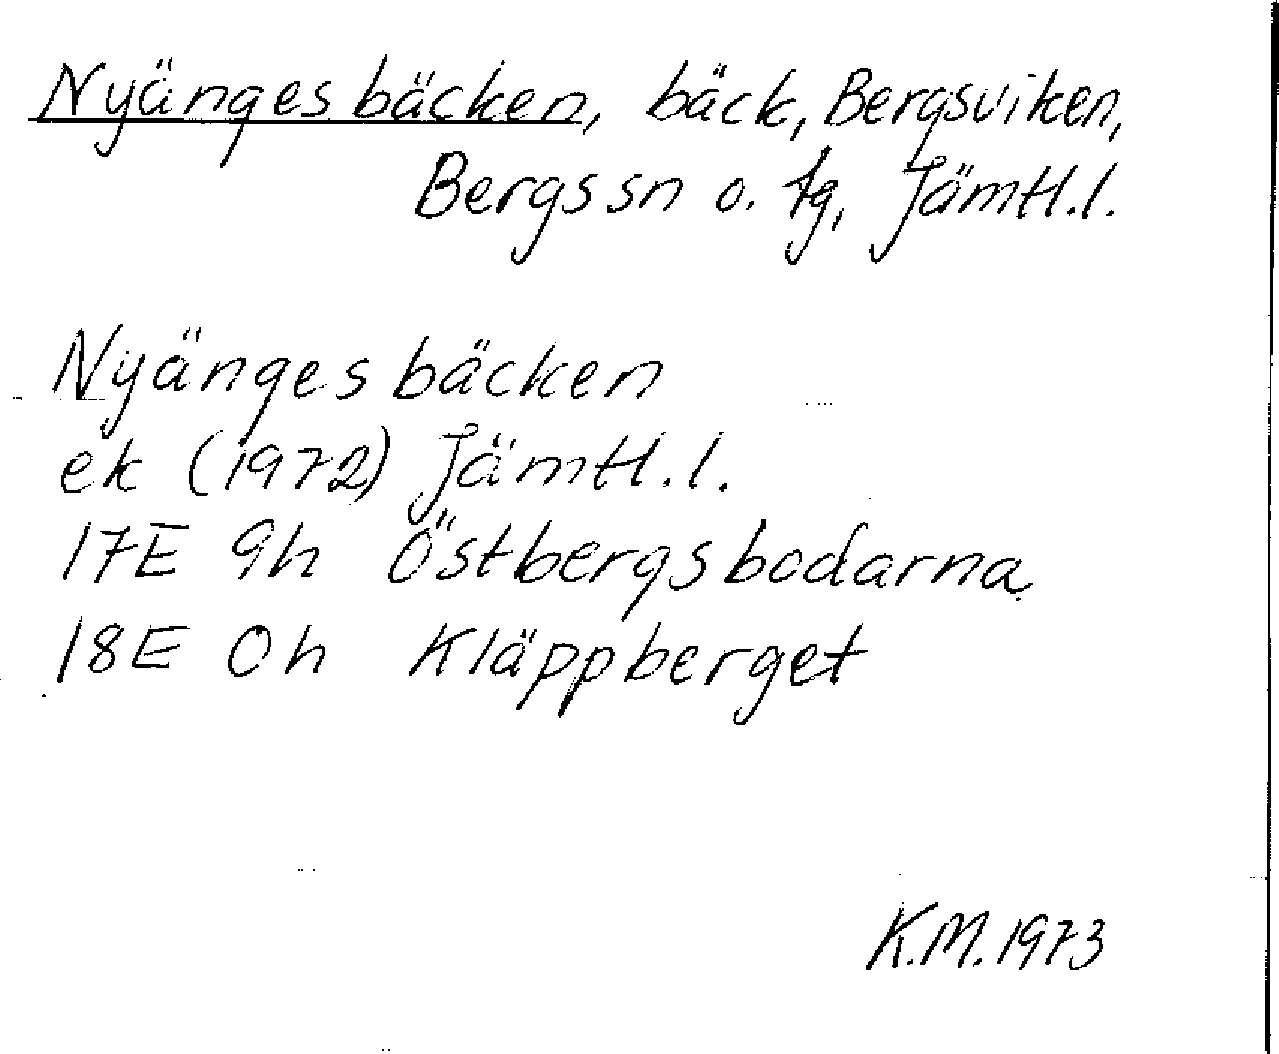 Nyängesbäcken, bäck, Bergsviken,
Bergs sn o. tg, Jämtl.l.
Nyängesbäcken
ek (1972) Jämtl.l.
17E 9h Östbergsbodarna
18E 0h Kläppberget
K.M. 1973